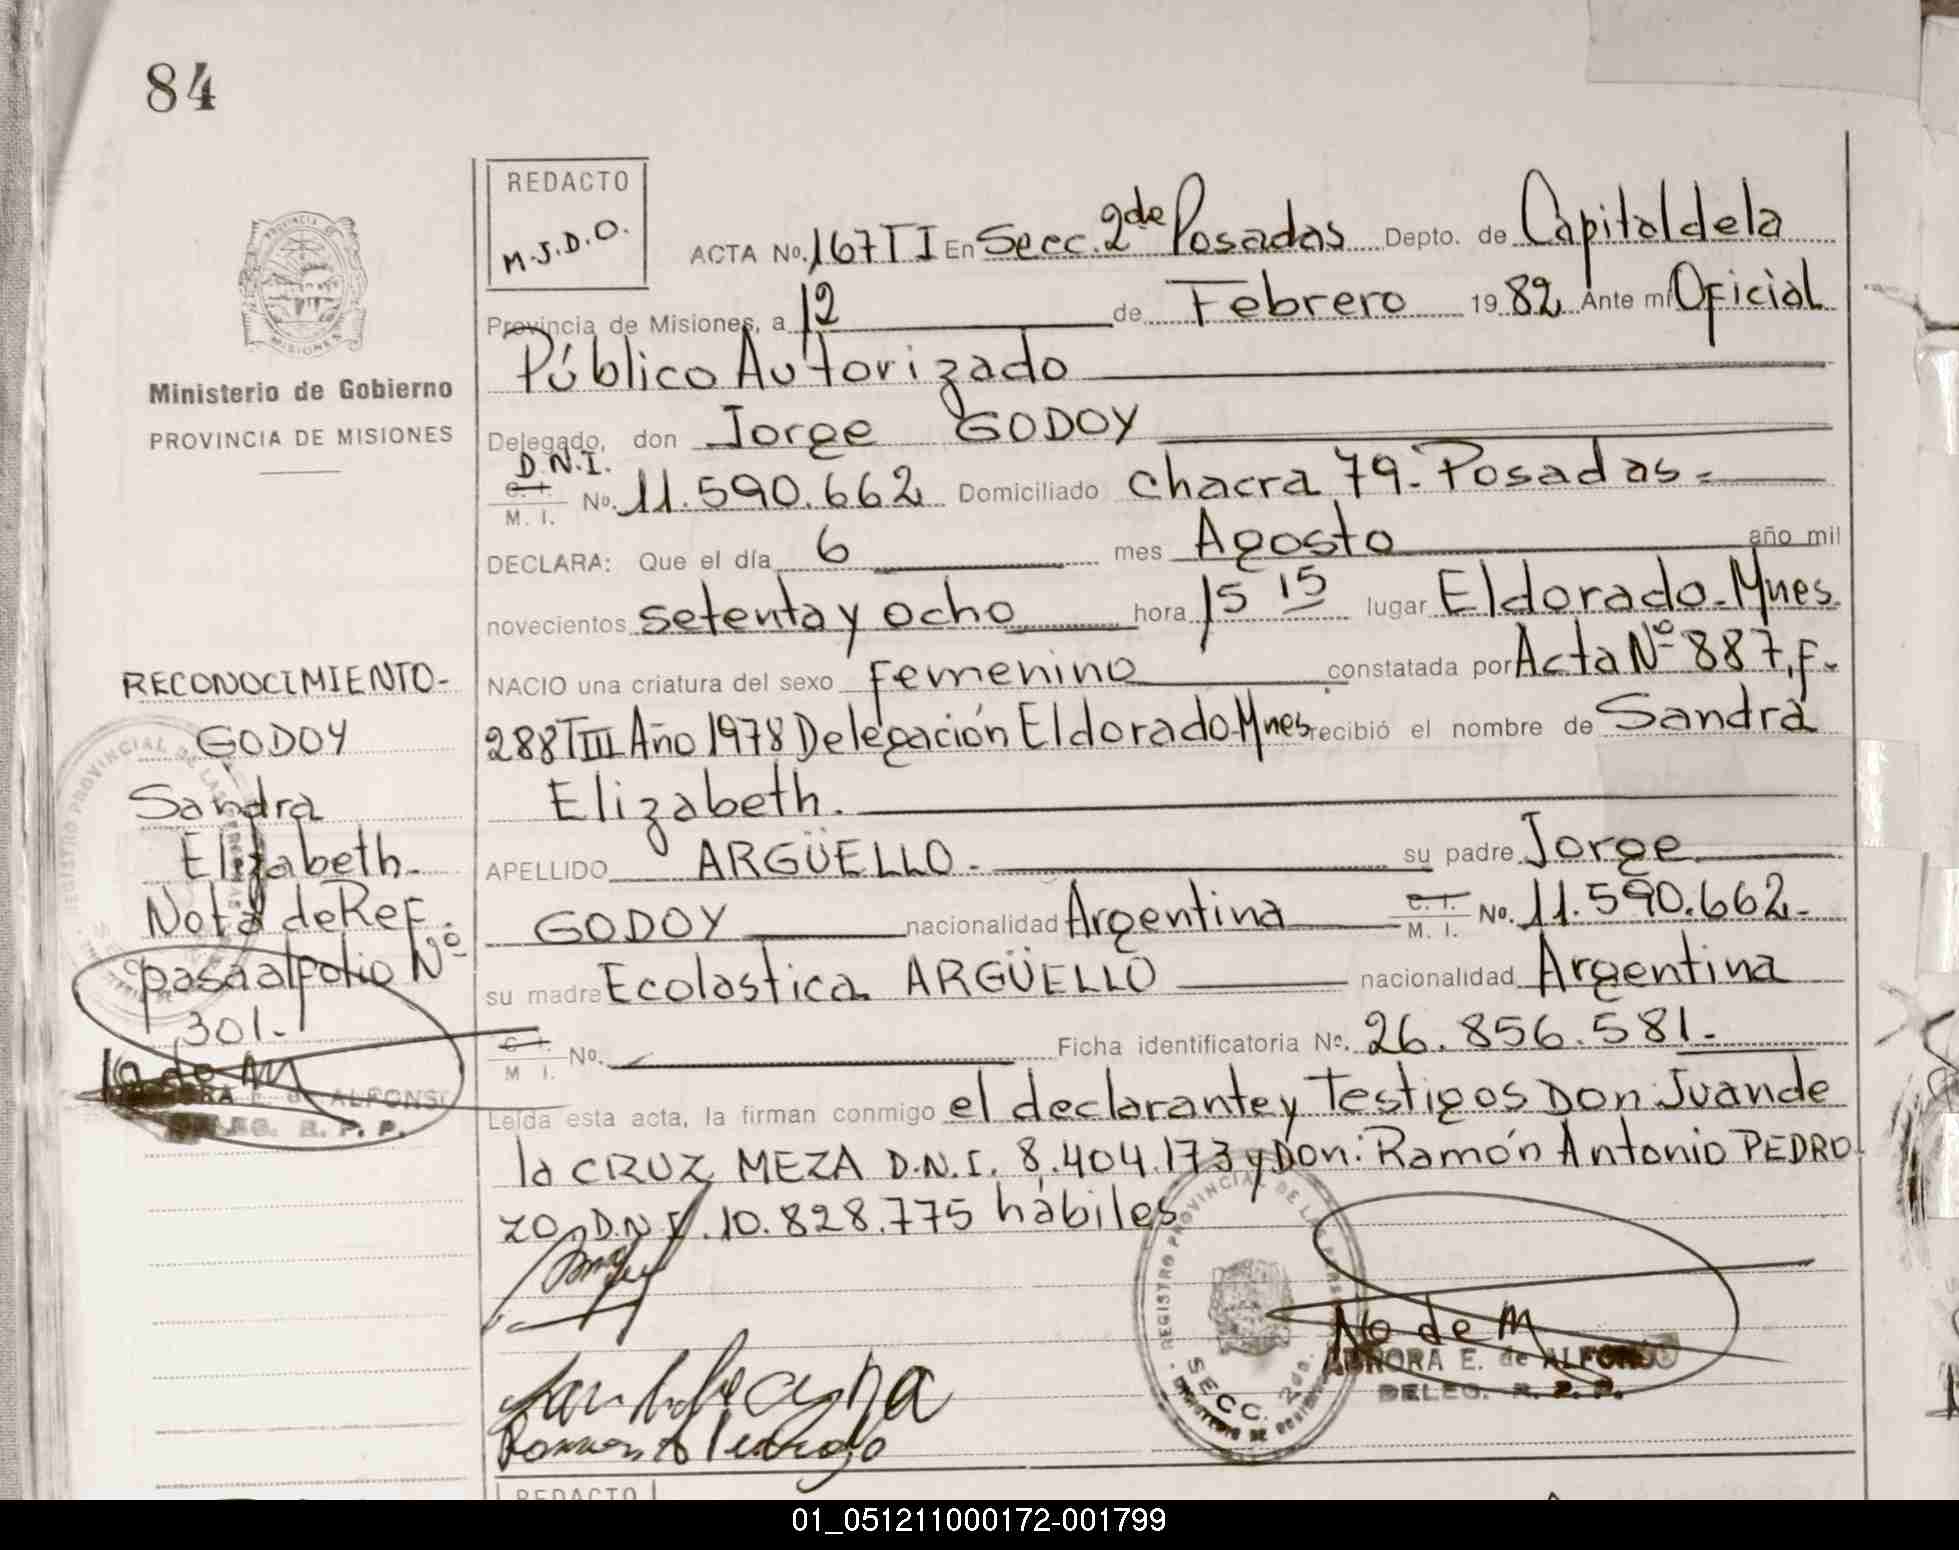 84
REDACTO
M.J.D.O.
ACTA No. 167 T I En Secc. 2da Posadas Depto. de Capital de la
Provincia de Misiones, a 12 de Febrero 1982 Ante mí Oficial
Público Autorizado
Delegado, don Jorge GODOY
D.N.I.
C. I.
M. I. No. 11.590.662 Domiciliado Chacra 79.- Posadas=
DECLARA: Que el día 6 mes Agosto año mil
novecientos setenta y ocho hora 15 15 lugar Eldorado-Mnes.
NACIO una criatura del sexo Femenino constatada por Acta Nº 887, F.
288 T III Año 1978 Delegación Eldorado-Mnes recibió el nombre de Sandra
Elizabeth.
APELLIDO ARGÜELLO.- su padre Jorge
GODOY nacionalidad Argentina C. I. M. I. No. 11.590.662.-
su madre Ecolastica ARGÜELLO nacionalidad Argentina
C. I. M. I. No. Ficha identificatoria No. 26.856.581.-
Leída esta acta, la firman conmigo el declarante y Testigos Don: Juan de
la CRUZ MEZA D.N.I. 8.404.173 y Don: Ramón Antonio PEDRO
ZO D.N.I. 10.828.775 hábiles
PROVINCIA
MISIONES
Ministerio de Gobierno
PROVINCIA DE MISIONES
RECONOCIMIENTO-
GODOY
Sandra
Elizabeth.-
Nota de Ref.
pasa al folio Nº
301.-
ALFONSO
DELEG. R. P. P.
REGISTRO PROVINCIAL DE LAS PERSONAS
SECC. 2da.
E. de ALFONSO
DELEG. R. P. P.
REDACTO
01_051211000172-001799